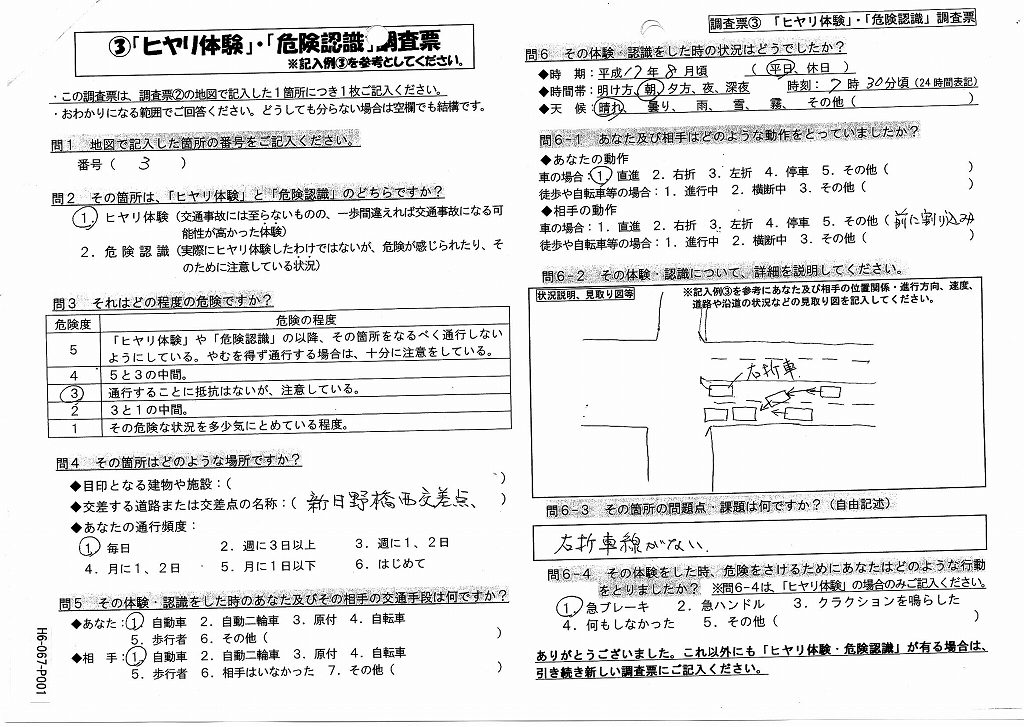 ③「ヒヤリ体験」・「危険認識」調査票
※記入例③を参考としてください。
・この調査票は、調査票②の地図で記入した1箇所につき1枚ご記入ください。
・おわかりになる範囲でご回答ください。どうしても分らない場合は空欄でも結構です。
問1 地図で記入した箇所の番号をご記入ください。
番号( 3 )
問2 その箇所は、「ヒヤリ体験」と「危険認識」のどちらですか?
1. ヒヤリ体験(交通事故には至らないものの、一歩間違えれば交通事故になる可
能性が高かった体験)
2. 危険認識(実際にヒヤリ体験したわけではないが、危険が感じられたり、そ
のために注意している状況)
問3 それはどの程度の危険ですか?
危険度 危険の程度
5 「ヒヤリ体験」や「危険認識」の以降、その箇所をなるべく通行しない
ようにしている。やむを得ず通行する場合は、十分に注意をしている。
4 5と3の中間。
3 通行することに抵抗はないが、注意している。
2 3と1の中間。
1 その危険な状況を多少気にとめている程度。
問4 その箇所はどのような場所ですか?
◆目印となる建物や施設:( )
◆交差する道路または交差点の名称:( 新日野橋西交差点、 )
◆あなたの通行頻度:
1. 毎日 2. 週に3日以上 3. 週に1、2日
4. 月に1、2日 5. 月に1日以下 6. はじめて
問5 その体験・認識をした時のあなた及びその相手の交通手段は何ですか?
◆あなた:1. 自動車 2. 自動二輪車 3. 原付 4. 自転車
5. 歩行者 6. その他( )
◆相 手:1. 自動車 2. 自動二輪車 3. 原付 4. 自転車
5. 歩行者 6. 相手はいなかった 7. その他( )
H6-067-P001
調査票③ 「ヒヤリ体験」・「危険認識」調査票
問6 その体験・認識をした時の状況はどうでしたか?
◆時 期:平成17年8月頃 ( 平日、休日 )
◆時間帯:明け方、朝、夕方、夜、深夜 時刻:7時30分頃(24時間表記)
◆天 候:晴れ、 曇り、 雨、 雪、 霧、 その他( )
問6-1 あなた及び相手はどのような動作をとっていましたか?
◆あなたの動作
車の場合:1. 直進 2. 右折 3. 左折 4. 停車 5. その他( )
徒歩や自転車等の場合:1. 進行中 2. 横断中 3. その他( )
◆相手の動作
車の場合:1. 直進 2. 右折 3. 左折 4. 停車 5. その他( 前に割り込み )
徒歩や自転車等の場合:1. 進行中 2. 横断中 3. その他( )
問6-2 その体験・認識について、詳細を説明してください。
状況説明、見取り図等
※記入例③を参考にあなた及び相手の位置関係・進行方向、速度、
道路や沿道の状況などの見取り図を記入してください。
右折車
問6-3 その箇所の問題点・課題は何ですか?(自由記述)
右折車線がない.
問6-4 その体験をした時、危険をさけるためにあなたはどのような行動
をとりましたか? ※問6-4は、「ヒヤリ体験」の場合のみご記入ください。
1. 急ブレーキ 2. 急ハンドル 3. クラクションを鳴らした
4. 何もしなかった 5. その他( )
ありがとうございました。これ以外にも「ヒヤリ体験・危険認識」が有る場合は、
引き続き新しい調査票にご記入ください。